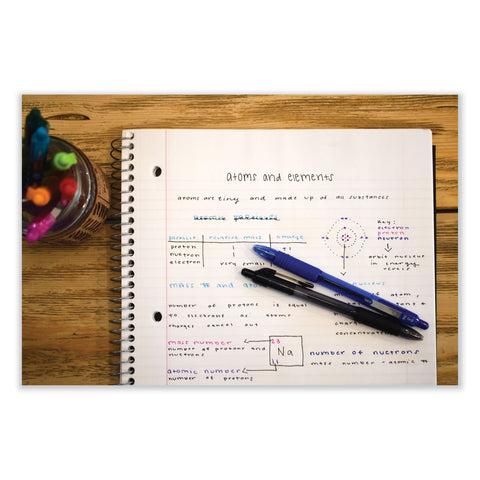 atoms and elements
atoms are tiny and made up of all substances
atomic particles
particle relative mass charge
proton 1 +1
nuetron 1
electron very small
key:
electron
proton
nuetron
orbit nucleus
in energy
levels
mass # and atom
nucleus
number of protons is equal
to electrons as atoms
charges cancel out
atom,
concentration
mass number
number of protons and
nuetrons
23
Na
11
atomic number
number of protons
number of nuetrons
mass number - atomic #